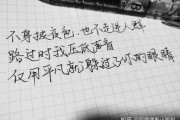 不披夜色，也不走进人群
路过时我压低声音
仅用平凡就躲过了你的眼睛
知乎